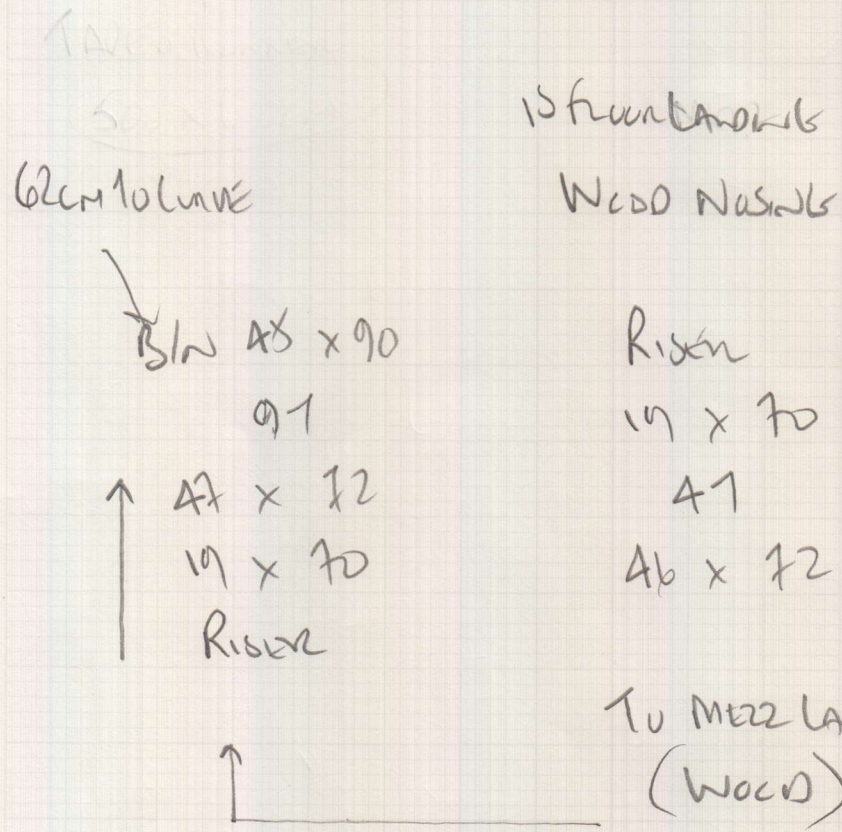 62CM TO CURVE
B/N 48 x 90
91
47 x 72
19 x 70
RISER
1S FLOOR LANDING
WOOD NOSING
RISER
19 x 70
41
46 x 72
TO MEZZ LA
(WOOD)